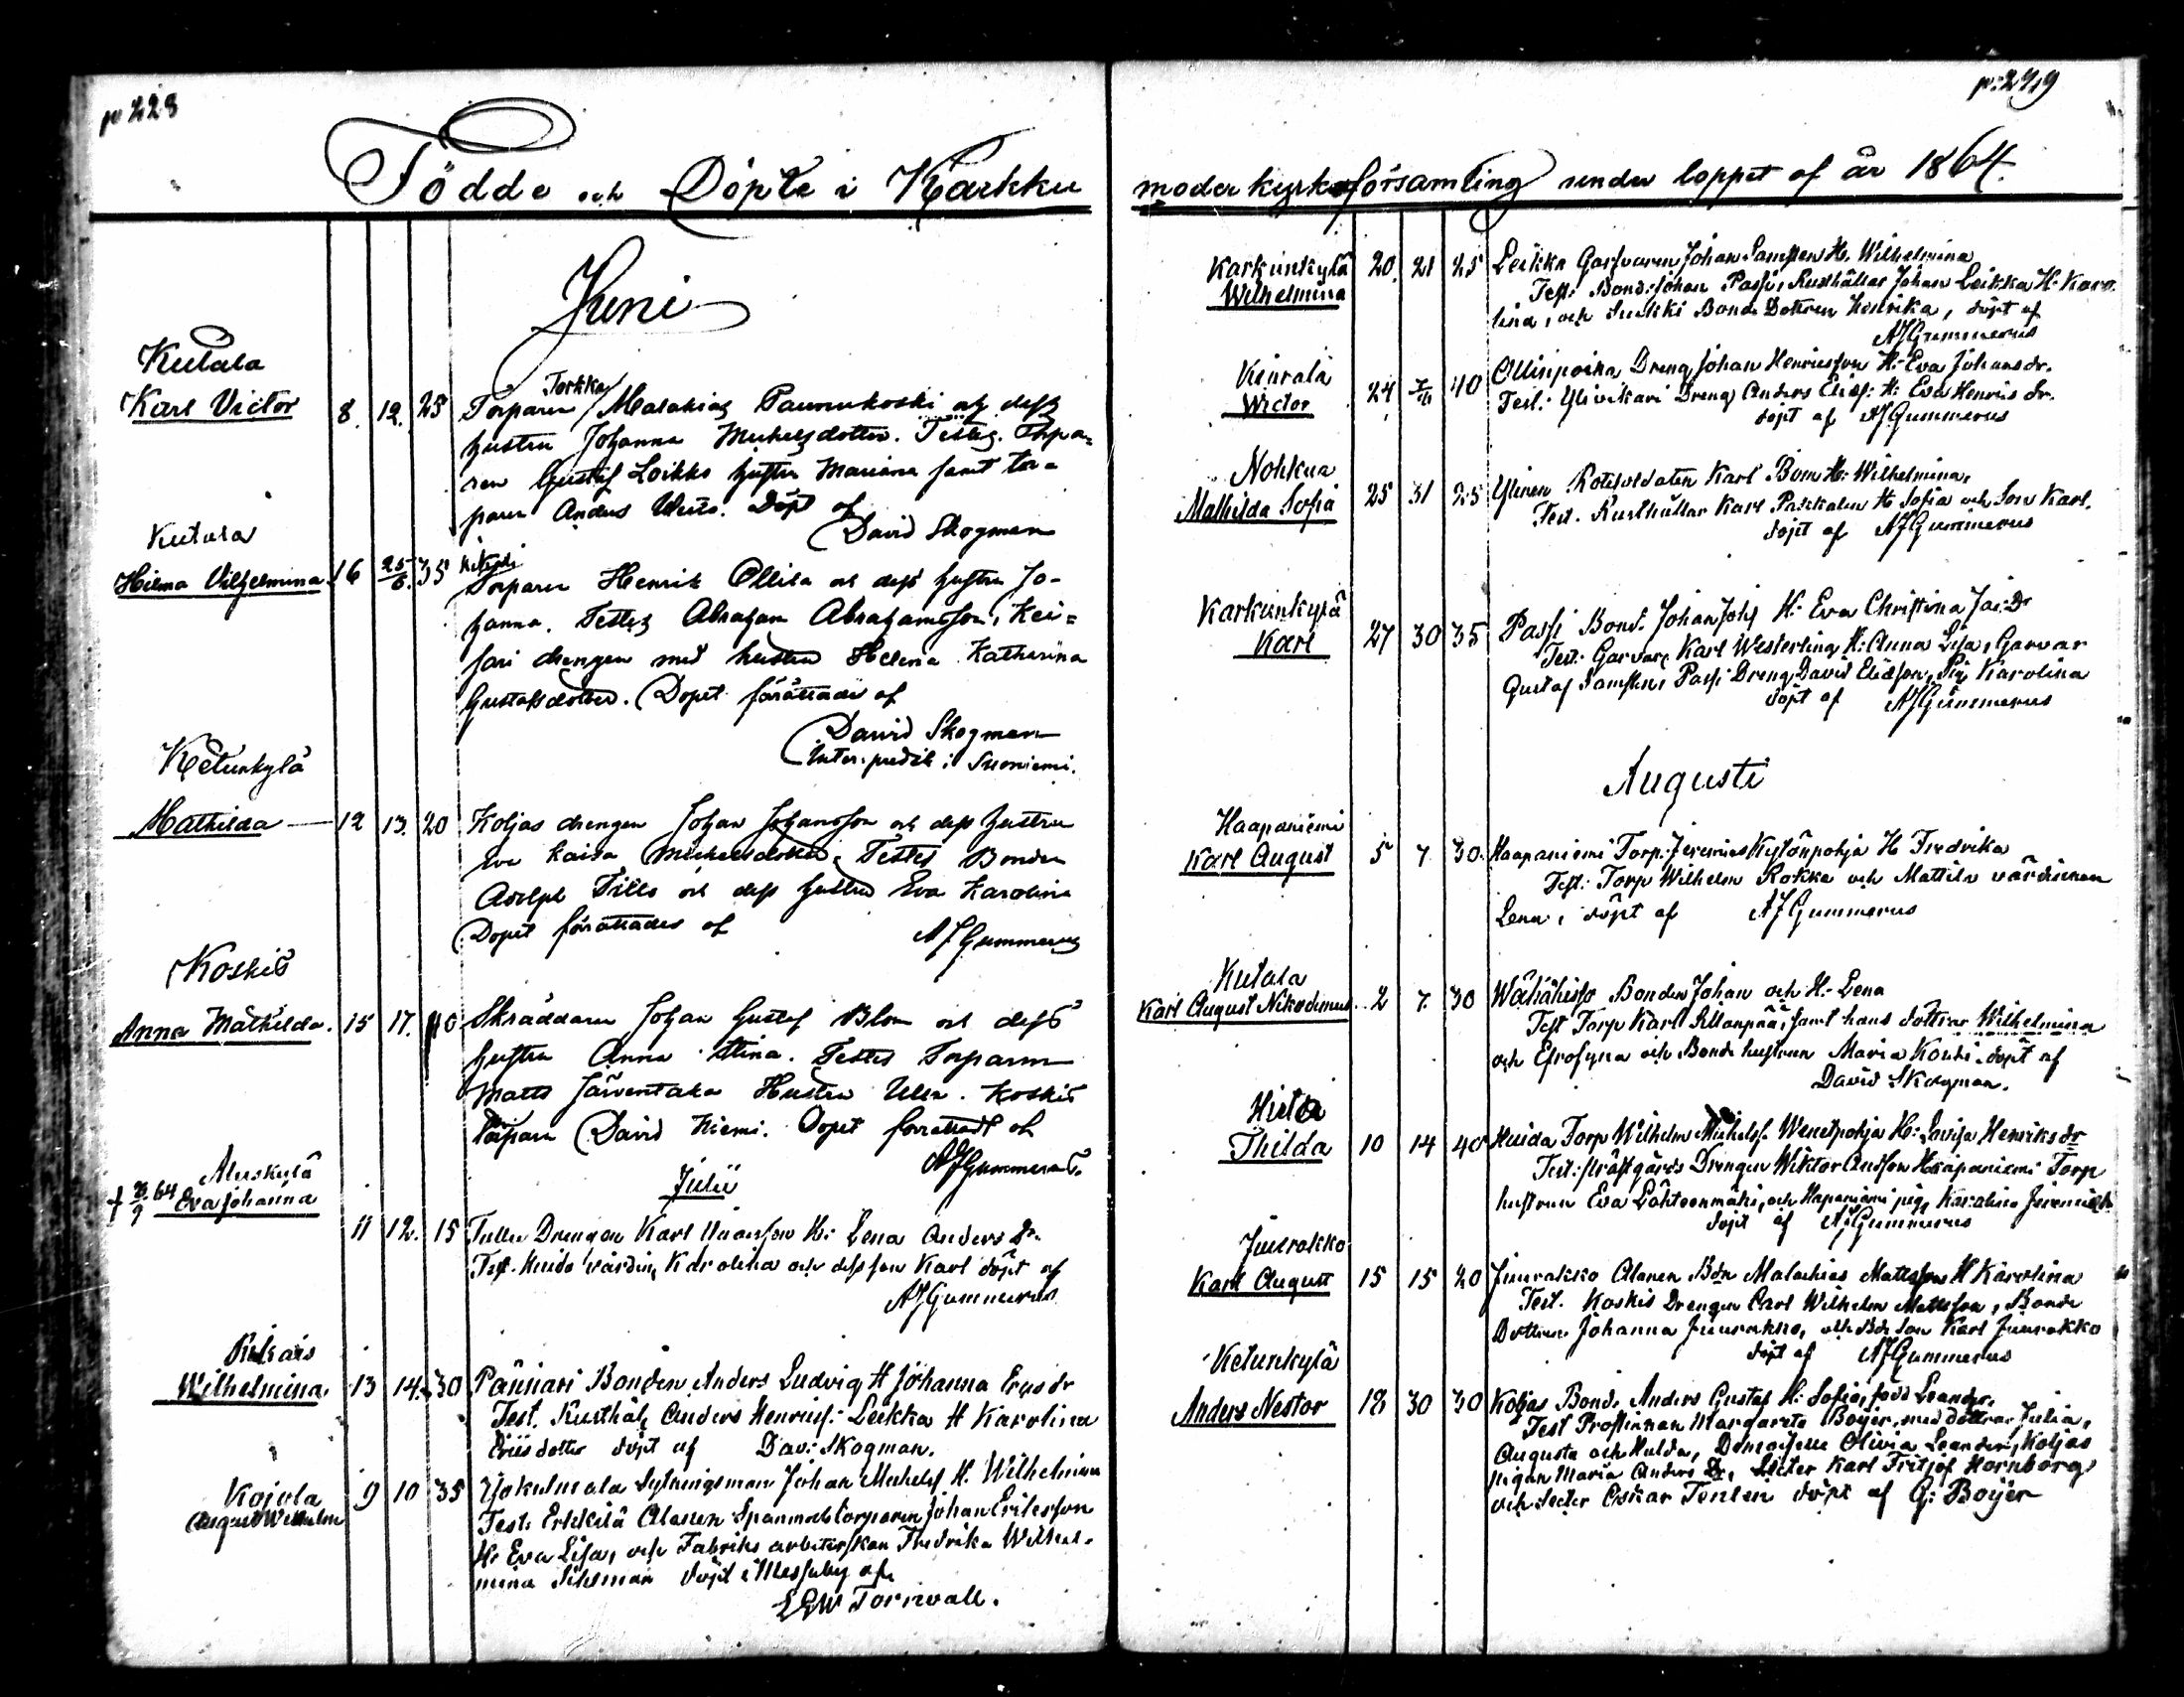 p 228
Födde och Döpte i Karkku
Juni
Kutala
Karl Victor 8. 12. 25 Torparen Torkka Malakias Paununkoski och dess
hustru Johanna Michelsdotter. Testes. Torpa=
ren Gustaf Loikko hustru Mariana samt tor=
paren Anders Uoti. Döpt af
David Skogman
Kutala
Hilma Vilhelmina 16 25/6. 35 Torparen Henrik Ollila och dess hustru Jo-
hanna. Testes Abraham Abrahamsson, Kei=
sari drengen med hustru Helena Katharina
Gustafsdotter. Dopet förättades af
David Skogman
Inter. predik i Suoniemi.
Ketunkylä
Mathilda 12 13. 20 Koljas drengen Johan Johansson och dess hustru
Eva Kaisa Michelsdotter. Testes Bonden
Adolph Tills och dess hustru Eva Karolina
Dopet förättades af AJGummerus
Koskis
Anna Mathilda. 15 17. 40 Skräddaren Johan Gustaf Blom och dess
hustru Anna Stina. Testes Torparen
Matts Järventaka Hustru Ulla. Koskis
torparen David Niemi. Dopet förrättadt af
AJGummerus.
Julii
Aluskylä
Eva Johanna 11 12. 15 Tullu Drengen Karl H: Lena Anders dr.
Test. Huida värdin Karolina och dess son Karl döpt af
AJGummerus
Wilhelmina. 13 14. 30 Pännäri Bonden Anders Ludvig H Johanna Ericsdr
Test. Rusthål. Anders Henricss: Leikka H Karolina
Ericsdotter döpt af Dav: Skogman.
Kojola
August Wilhelm 9 10 35 Sytningsman Johan Michelss H. Wilhelmina
Test: Erkkilä Alanen Spanmålstorparen Johan Ericsson
H: Eva Lisa, och Fabriks arbeterskan Fredrika Wilhel-
mina Sihlman döpt i Messuby af
LEW Tornvall.
p: 249
moderkyrkoförsamling under loppet af år 1864.
Karkunkylä
Wilhelmina 20. 21 25 Leikka Garfvaren Johan Samsten H. Wilhelmina
Test: Bond: Johan Passi, Rusthållar Johan Leikka H: Karo-
lina, och Bonde Dottren Henrika, döpt af
AJGummerus
Kiurala
Wictor 24 40 Ollinpoika Dreng Johan Henricsson H: Eva Johansdr.
Test: Ylivikari Dreng Anders Eliæ: H: Eva Henrics dr.
döpt af AJGummerus
Nohkua
Mathilda Sofia 25 31 25 Ylinen Rotesoldaten Karl Bom H: Wilhelmina.
Test. Rusthållar Karl H Sofia och Son Karl.
döpt af AJGummerus
Karkunkylä
Karl 27 30 35 Passi Bond. Johan Johss H: Eva Christina Jac: Dr
Test: Garvare Karl Westerling H: Anna Lisa, Garvar
Gustaf Samsten, Passi Dreng David Eliasson, Pig. Karolina
döpt af AJGummerus
Augusti
Haapaniemi
Karl August 5 7 30. Haapaniemi Torp. Jeremias Kytönpohja H Fredrika
Test: Torp Wilhelm Rokka och Mattila värdinnan
Lena, döpt af AJGummerus
Kutala
Karl August Nikodemus 2 7 30 Wähähisto Bonden Johan och H: Lena
Test Torp Karl Sillanpää, samt hans döttrar Wilhelmina
och Efrosyna och Bonde hustrun Maria Kouhi döpt af
David Skogman.
Thilda 10 14 40 Huida Torp Wilhelm Michelss. Wenetpohja H: Lovisa Henriksdr
Test: Prästgårds Drengen Wiktor Haapaniemi Torp
hustrun Eva Lähteenmäki, och Hapaniemi pig. Karolina Jeremiæ dr
döpt af AJGummerus
Juurakko
Karl August 15 15 20 Juurakko Alanen Bdn Malachias Mattsson H Karolina
Test. Koskis Drengen Carl Wilhelm Mattsson, Bonde
Dottren Johanna Juurakko, och Bde Son Karl Juurakko
döpt af AJGummerus
Ketunkylä
Anders Nestor 12 30 30 Koljas Bond. Anders Gustaf H: Sofia född Leander.
Test Prostinnan Margareta Boijer, med döttrar Julia,
Augusta och Hulda, Demoiselle Olivia Leander, Koljas
pigan Maria Anders Dr, Karl Fritjof Hornborg
och Oskar döpt af G: Boijer